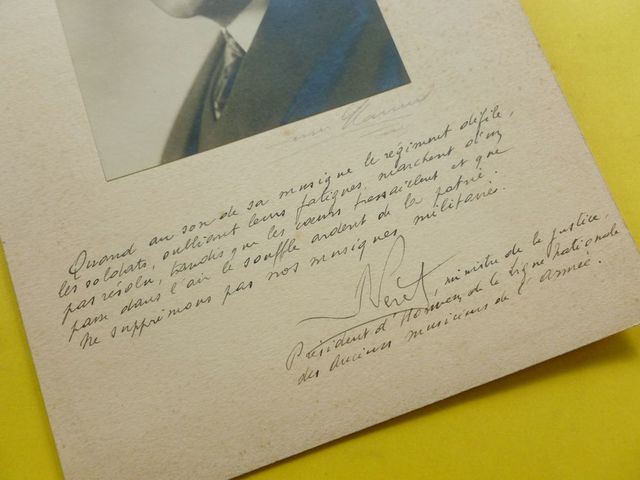 Quand au son de sa musique le régiment défile,
les soldats, oubliant leurs fatigues, marchent d'un
pas résolu, tandis que les cœurs tressaillent et que
passe dans l'air le souffle ardent de la patrie.
Ne supprimons pas nos musiques militaires.
Péret
ministre de la justice,
Président d'Honneur de la ligue nationale
des anciens musiciens de l'Armée.